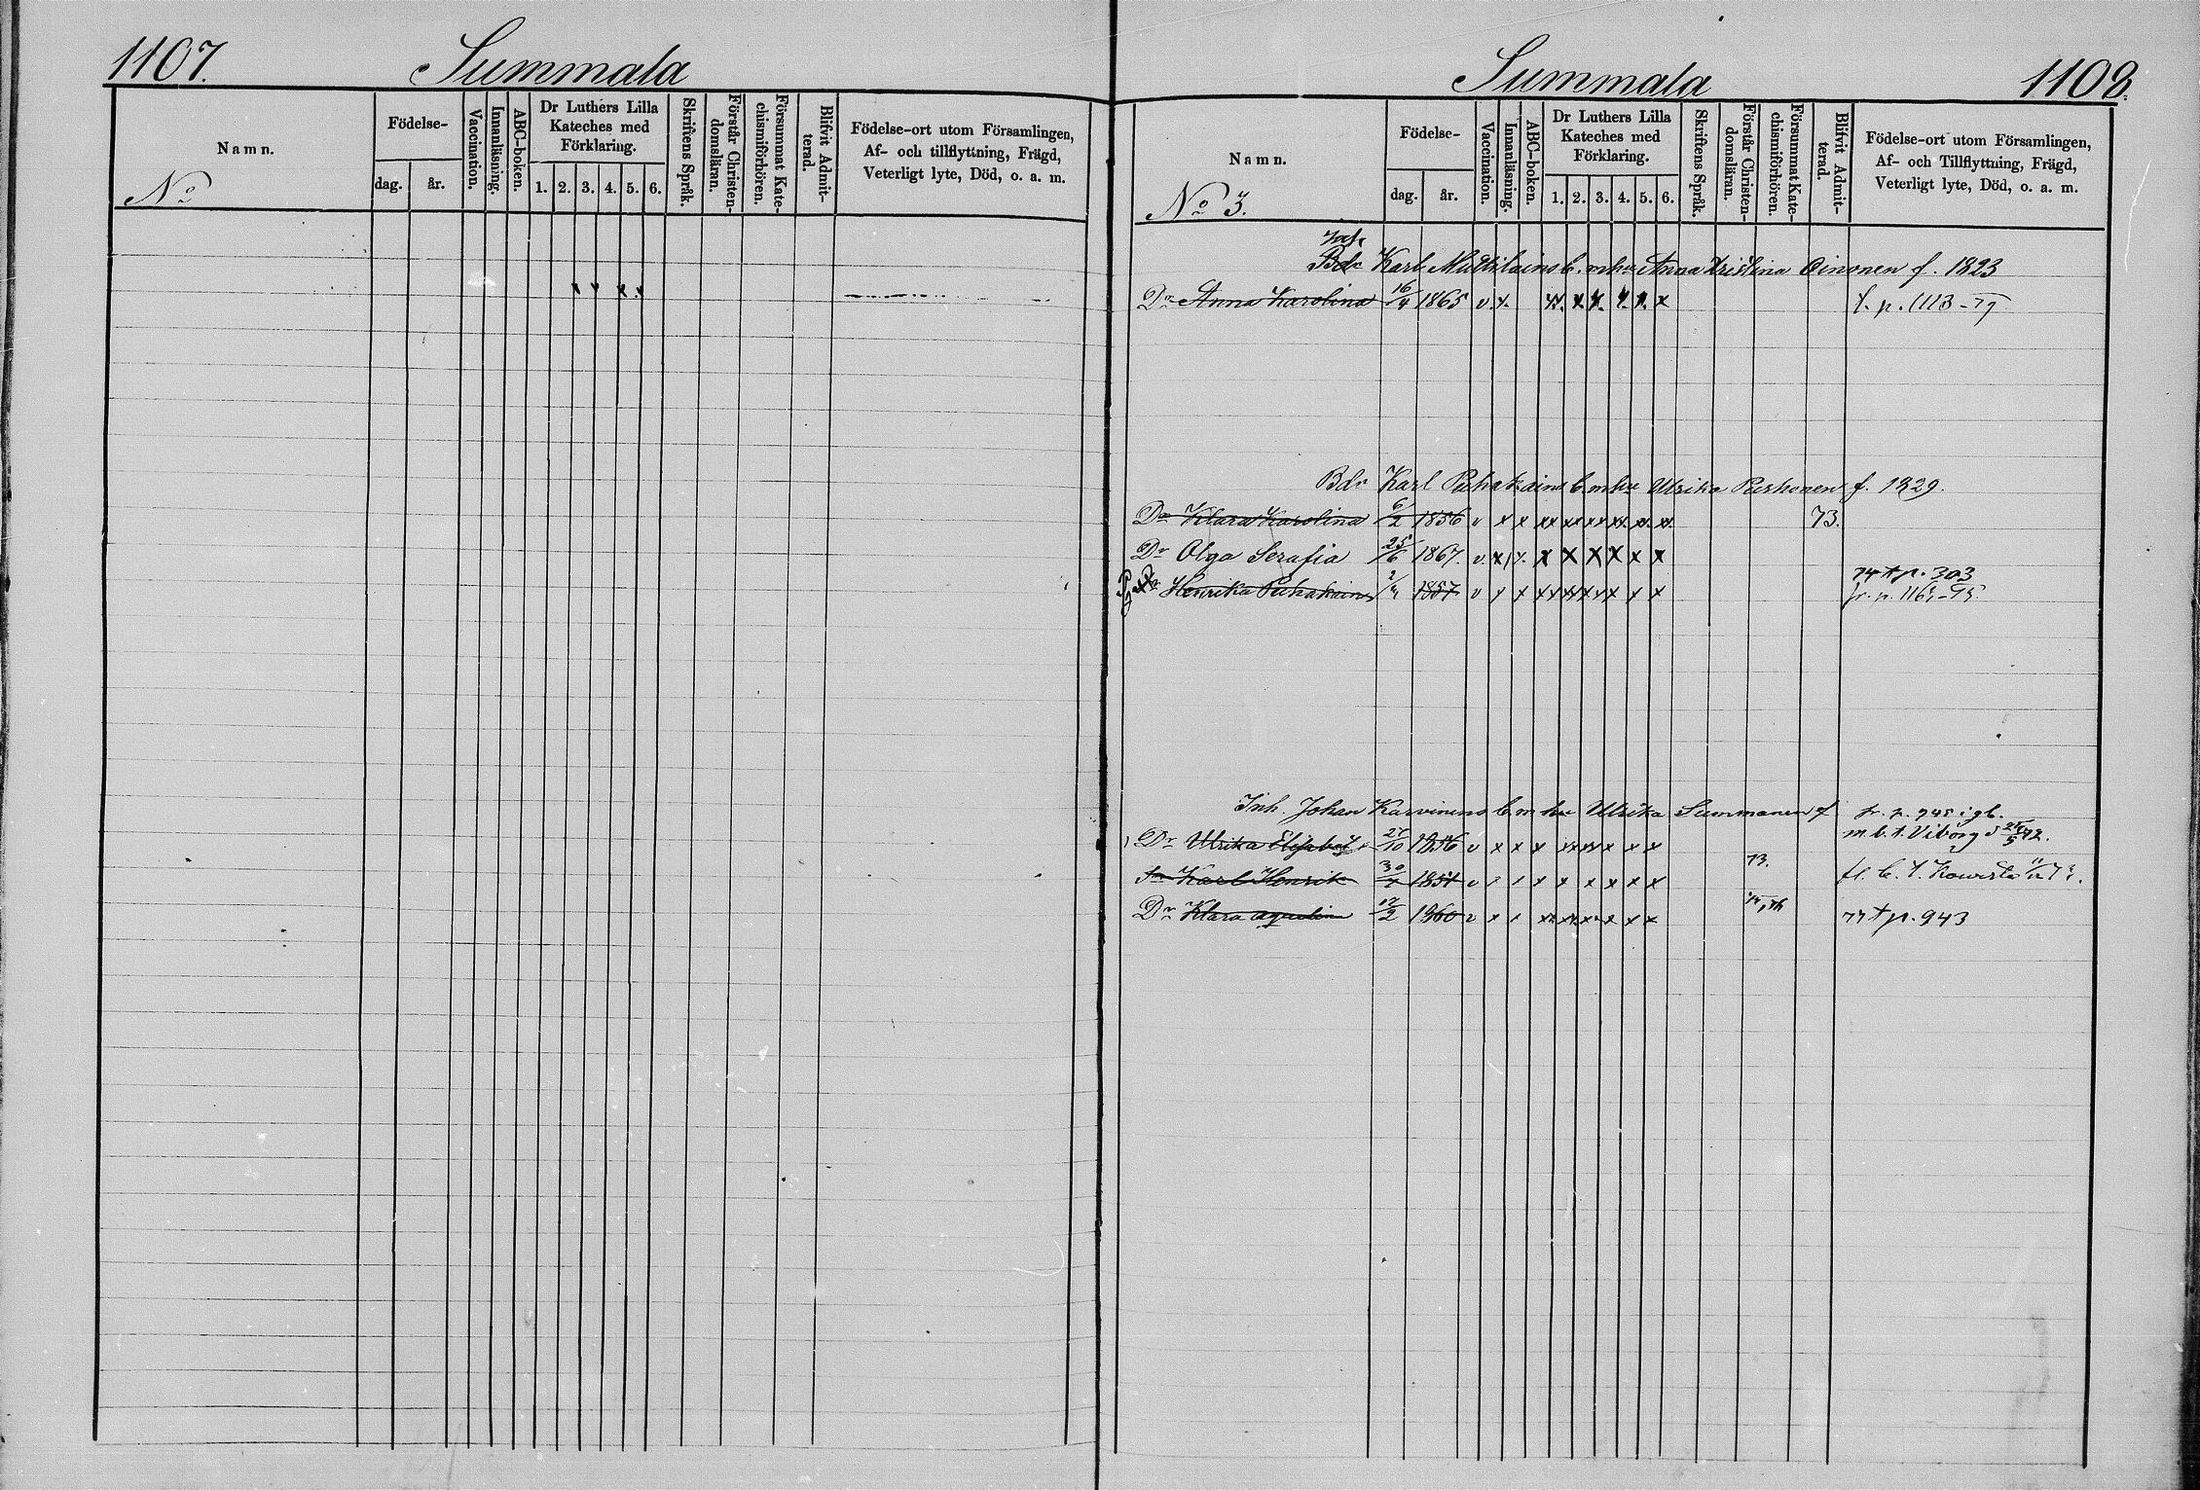 1107.
Summala
Namn.
No
Födelse-
dag.
år.
Vaccination.
Innanläsning.
ABC-boken.
Dr Luthers Lilla
Kateches med
Förklaring.
1. 2. 3. 4. 5. 6.
Skriftens Språk.
Förstår Christen-
domsläran.
Försummat Kate-
chismiförhören.
Blifvit Admit-
terad.
Födelse-ort utom Församlingen,
Af- och tillflyttning, Frägd,
Veterligt lyte, Död, o. a. m.
x x x x
Summala
1108.
Namn.
No 3.
Födelse-
dag.
år.
Vaccination.
Innanläsning.
ABC-boken.
Dr Luthers Lilla
Kateches med
Förklaring.
1. 2. 3. 4. 5. 6.
Skriftens Språk.
Förstår Christen-
domsläran.
Försummat Kate-
chismiförhören.
Blifvit Admit-
terad.
Födelse-ort utom Församlingen,
Af- och Tillflyttning, Frägd,
Veterligt lyte, Död, o. a. m.
Bdr Karl b. m hu Anna Kristina Oinonen f. 1823
Dr Anna Karolina 16/4 1865 v x x x x x x t. p. 1113-77
Bdr Karl Puhakains b. m hu Ulrika f. 1829.
Dr Klara Karolina 6/2 1856 v x x xx xx xx xx xx xx 73.
Dr Olga Serafia 25/6 1867. v. x x x x x x x
74 t p. 303
Henrika Puhakain 1857 v x x xx xx xx x x x fr. p.
Inh. Johan Karvinens b. m hu Ulrika Summanen f fr. p. 945 i gb.
Dr Ulrika Elisabet 27/10 1856 v x x x xx xx x x x m. b. t. Viborg d
Sn Karl Henrik 30/7 1851 v x x x x x x 73. fl. b. t.
Dr Klara 17/2 1860 v x x xx xx x x x x 77 t p. 943